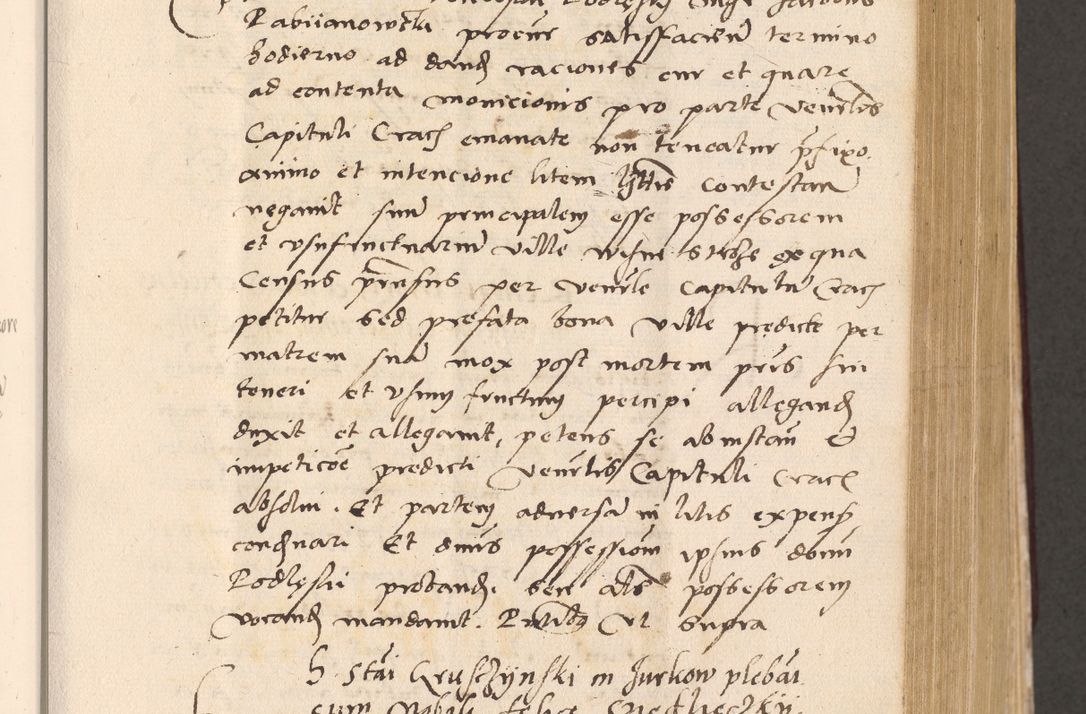 Rabiianowski procur satisfaciens termino
hodierno ad dand raciones cur et quare
ad contenta monicionis pro parte venerlis
Capituli Crac emanate non teneatur pfixo
animo et intencione litem lgttis contestan
negavit suum principalem esse possessorem
et usufructuarium ville ex qua
Census prensus per venerle Capitulu Crac
petitur sed prefata bona ville predicte per
matrem suam mox post mortem pris sui
teneri et usum fructum percipi allegand
duxit et allegavit, petens se ab instan et
impeticoe predicti venerlis Capituli Crac
absolvi. Et partem adversam in litis expens
condnari Et dnus possessionem ipsius domi
Podleski probandi seu als possessorem
vocand mandavit. Pntibus Ut supra
H. Stai Gruszynski in Jurkow plebai
cum Nobili felice